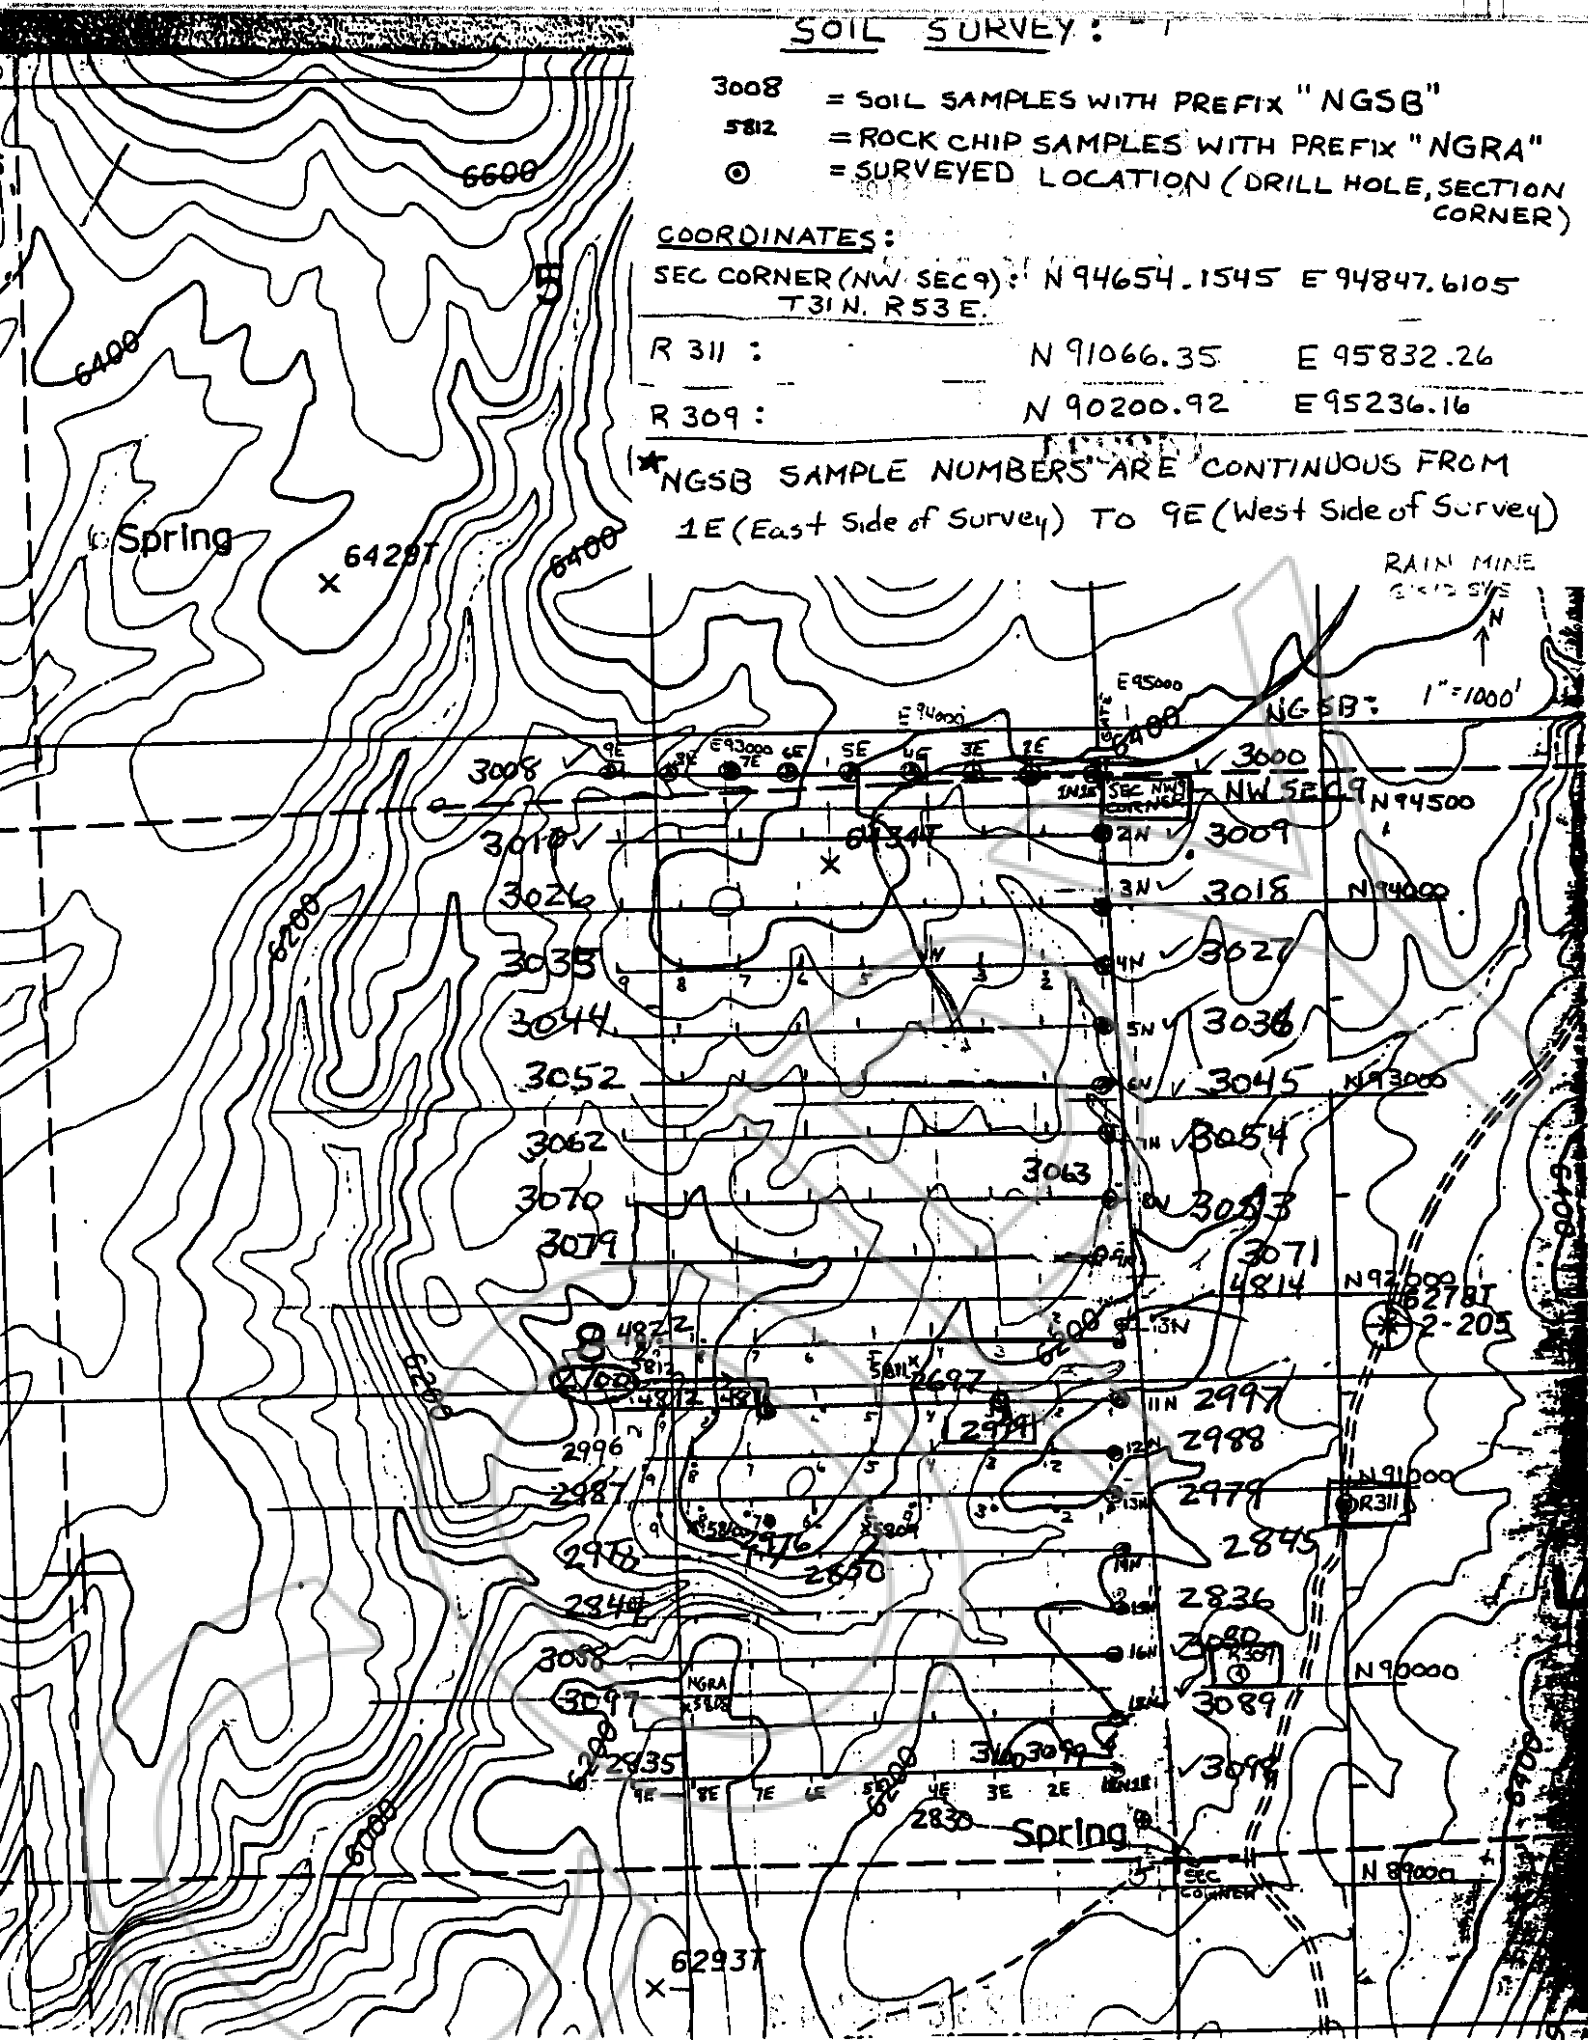 SOIL SURVEY:
3008 = SOIL SAMPLES WITH PREFIX "NGSB"
5812 = ROCK CHIP SAMPLES WITH PREFIX "NGRA"
= SURVEYED LOCATION (DRILL HOLE, SECTION
CORNER)
COORDINATES:
SEC CORNER (NW SEC 9): N 94654.1545 E 94847.6105
T31N. R53E.
R 311 : N 91066.35 E 95832.26
R 309 : N 90200.92 E 95236.16
*NGSB SAMPLE NUMBERS ARE CONTINUOUS FROM
1E (East Side of Survey) TO 9E (West Side of Survey)
RAIN MINE
N
1"=1000'
NGSB:
6600
5
6400
Spring
6429T
6400
E95000
E 94000
GATE
6400
3008 9E 8E E93000 7E 6E 5E 4E 3E 2E 3000
1N1E SEC NW9 CORNER NW SEC 9 N94500
6434T 2N 3009
3026 3N 3018 N94000
6200
3035 4N 3027
9 8 7 6 5 3 2
3044 5N 3036
3052 6N 3045 N93000
3062 7N 3054
3063
3070 8N
3079 3071
4814 N92000
6278T
2-205
6400
8 4822 6200 13N
7 6 4 3
5812 2697
6200
4812 11N 2997
2996 12N 2988
2987 13N 2979 N91000
R311
5809
2976
2978 2850 14N 2845
2844 15N 2836
3088 16N 3080
R309 N90000
NGRA
5808
3097 3089
6200 2835 3100 3099 3098
9E 8E 7E 6E 5E 4E 3E 2E
6200 6400
2830 Spring
6000
SEC
CORNER
N 89000
6293T